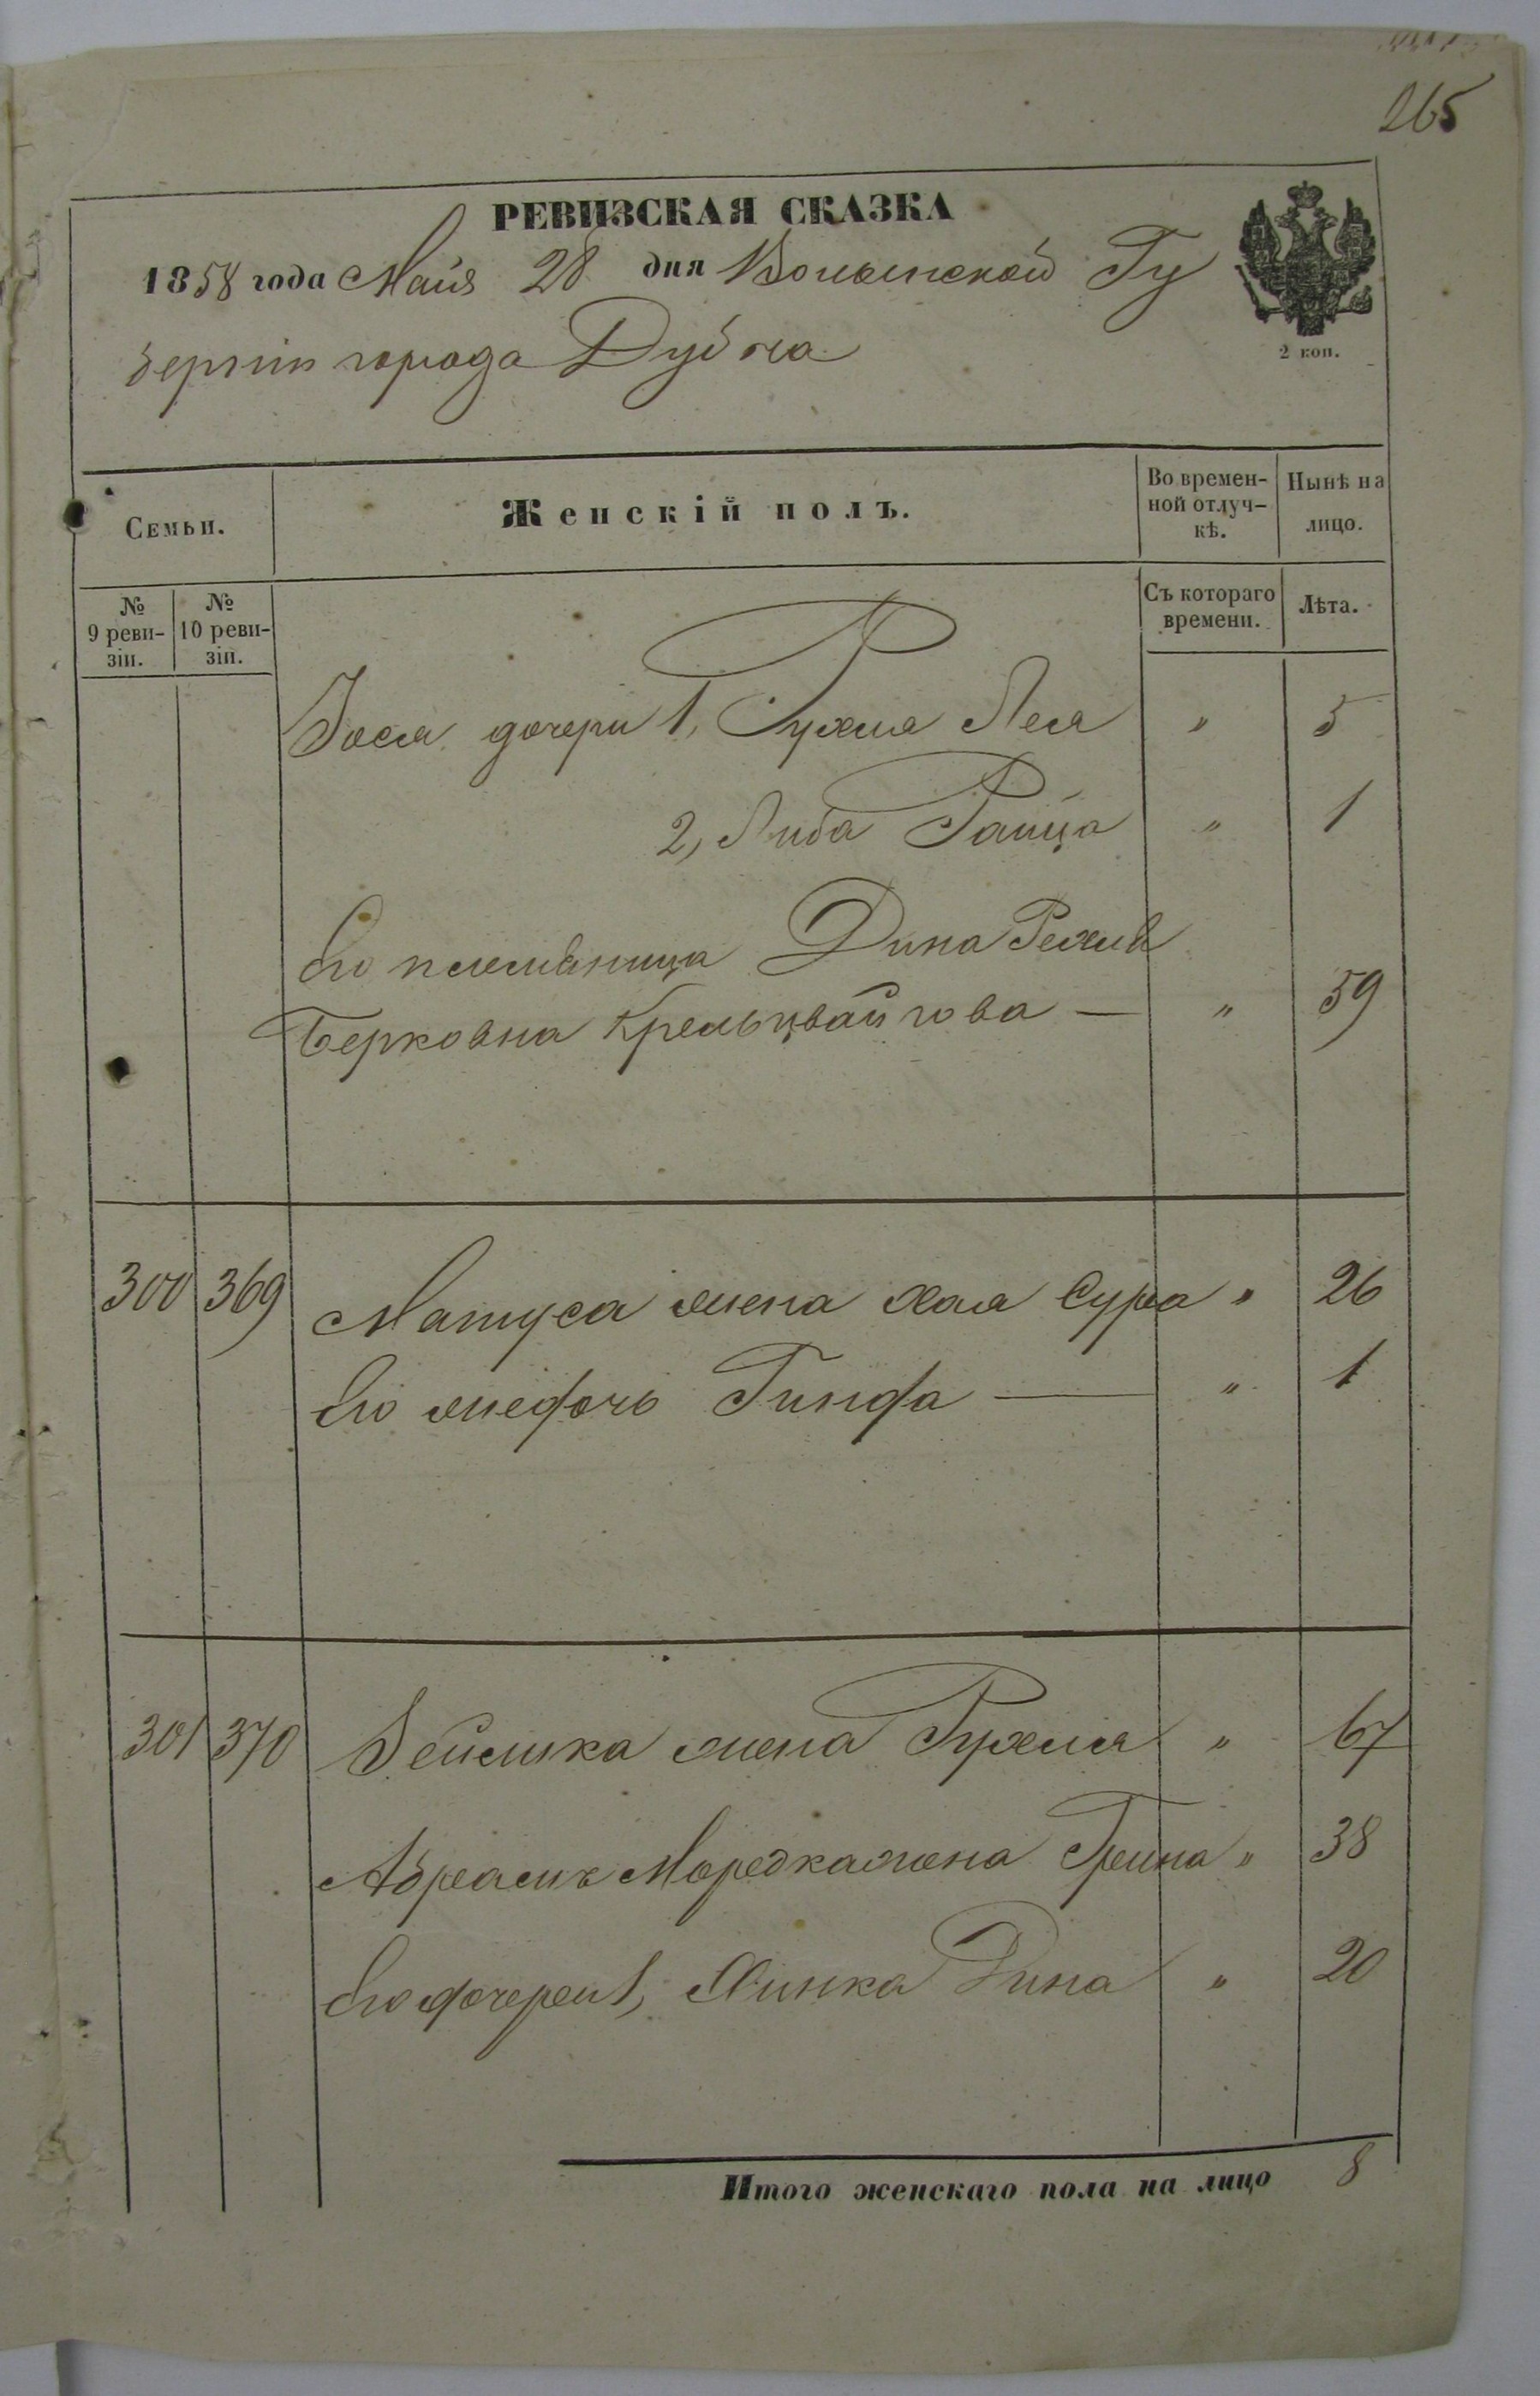 265
РЕВИЗСКАЯ СКАЗКА
1858 года Маія 28 дня Волынской Гу
берніи города Дубна
2 коп.
Семьи.
Женскій полъ.
Во времен-
ной отлуч-
кѣ.
Нынѣ на
лицо.
№
9 реви-
зіи.
№
10 реви-
зіи.
Съ котораго
времени.
Лѣта.
Іося дочери 1, Рухля Лея " 5
2, Либа Раица " 1
Его племяница Дина Рехля
Берковна Крельцвайгова — " 59
300 369 Матуса жена Хая Сура " 26
Его же дочь Гинда — " 1
301 370 Зейлика жена Рухля " 67
Абрамъ Моредка жена Грейна " 38
Его дочери 1, Хинка Дина " 20
Итого женскаго пола на лицо 8